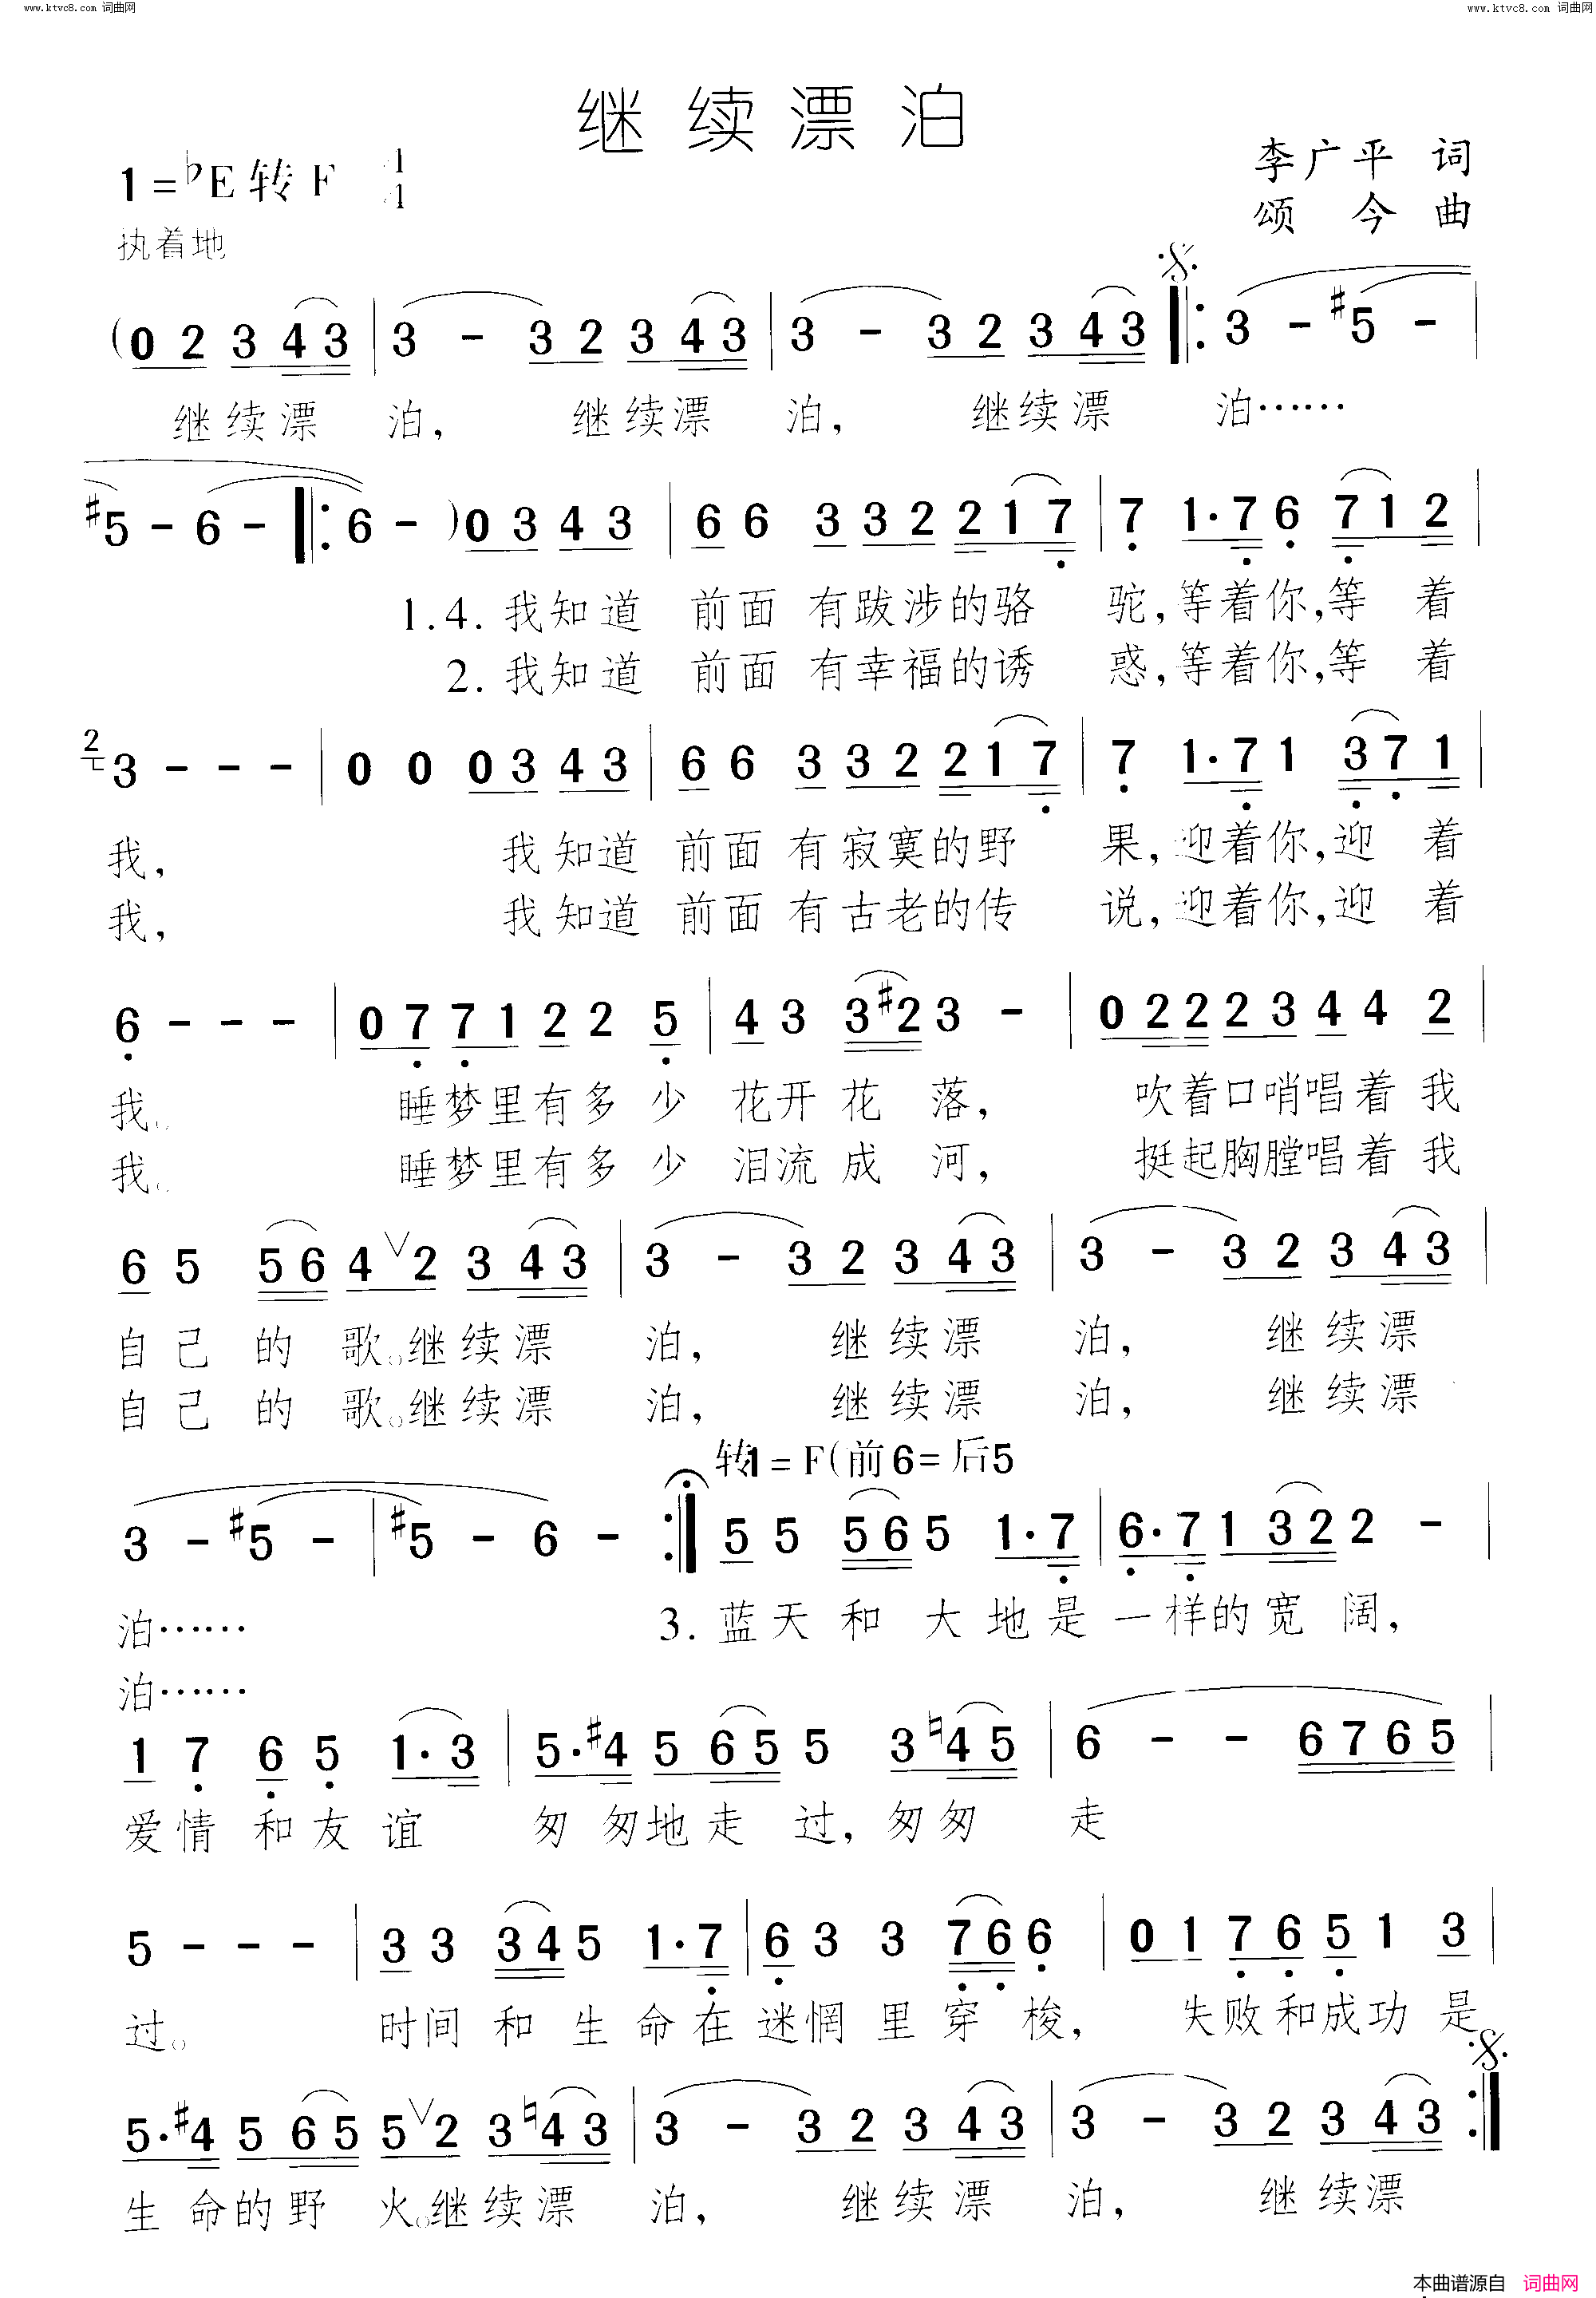 www.ktvc8.com 词曲网
www.ktvc8.com 词曲网
继续漂泊
1=♭E转F 4/4
李广平 词
颂今 曲
执着地
(0 2 3 4 3 | 3 - 3 2 3 4 3 | 3 - 3 2 3 4 3 ‖: 3 - #5 - |
继续漂 泊, 继续漂 泊, 继续漂 泊……
#5 - 6 - ‖: 6 - ) 0 3 4 3 | 6 6 3 3 2 2 1 7 | 7 1·7 6 7 1 2 |
1.4. 我知道 前面 有跋涉的骆 驼,等着你,等 着
2. 我知道 前面 有幸福的诱 惑,等着你,等 着
2 3 - - - | 0 0 0 3 4 3 | 6 6 3 3 2 2 1 7 | 7 1·7 1 3 7 1 |
我, 我知道 前面 有寂寞的野 果,迎着你,迎 着
我, 我知道 前面 有古老的传 说,迎着你,迎 着
6 - - - | 0 7 7 1 2 2 5 | 4 3 3 #2 3 - | 0 2 2 2 3 4 4 2 |
我。 睡梦里有多 少 花开 花 落, 吹着口哨唱着 我
我。 睡梦里有多 少 泪流 成 河, 挺起胸膛唱着 我
6 5 5 6 4 ∨ 2 3 4 3 | 3 - 3 2 3 4 3 | 3 - 3 2 3 4 3 |
自己 的 歌。继续漂 泊, 继续漂 泊, 继续漂
自己 的 歌。继续漂 泊, 继续漂 泊, 继续漂
转1=F(前6=后5
3 - #5 - | #5 - 6 - :‖ 5 5 5 6 5 1·7 | 6·7 1 3 2 2 - |
泊…… 3. 蓝天 和 大地是 一样的宽 阔,
泊……
1 7 6 5 1·3 | 5·#4 5 6 5 5 3 ♮4 5 | 6 - - 6 7 6 5 |
爱情 和友 谊 匆 匆地走 过, 匆匆 走
5 - - - | 3 3 3 4 5 1·7 | 6 3 3 7 6 6 | 0 1 7 6 5 1 3 |
过。 时间 和 生 命在 迷惘 里 穿 梭, 失败和成功 是
5·#4 5 6 5 5 ∨ 2 3 ♮4 3 | 3 - 3 2 3 4 3 | 3 - 3 2 3 4 3 :‖
生 命的野 火。继续漂 泊, 继续漂 泊, 继续漂
本曲谱源自 词曲网